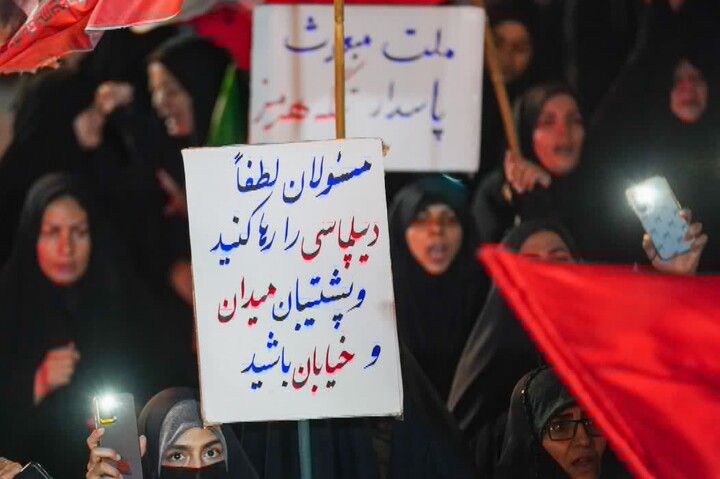 ملت مبعوث
پاسدار تنگه هرمز
مسئولان لطفاً
دیپلماسی را رها کنید
و پشتیبان میدان
و خیابان باشید